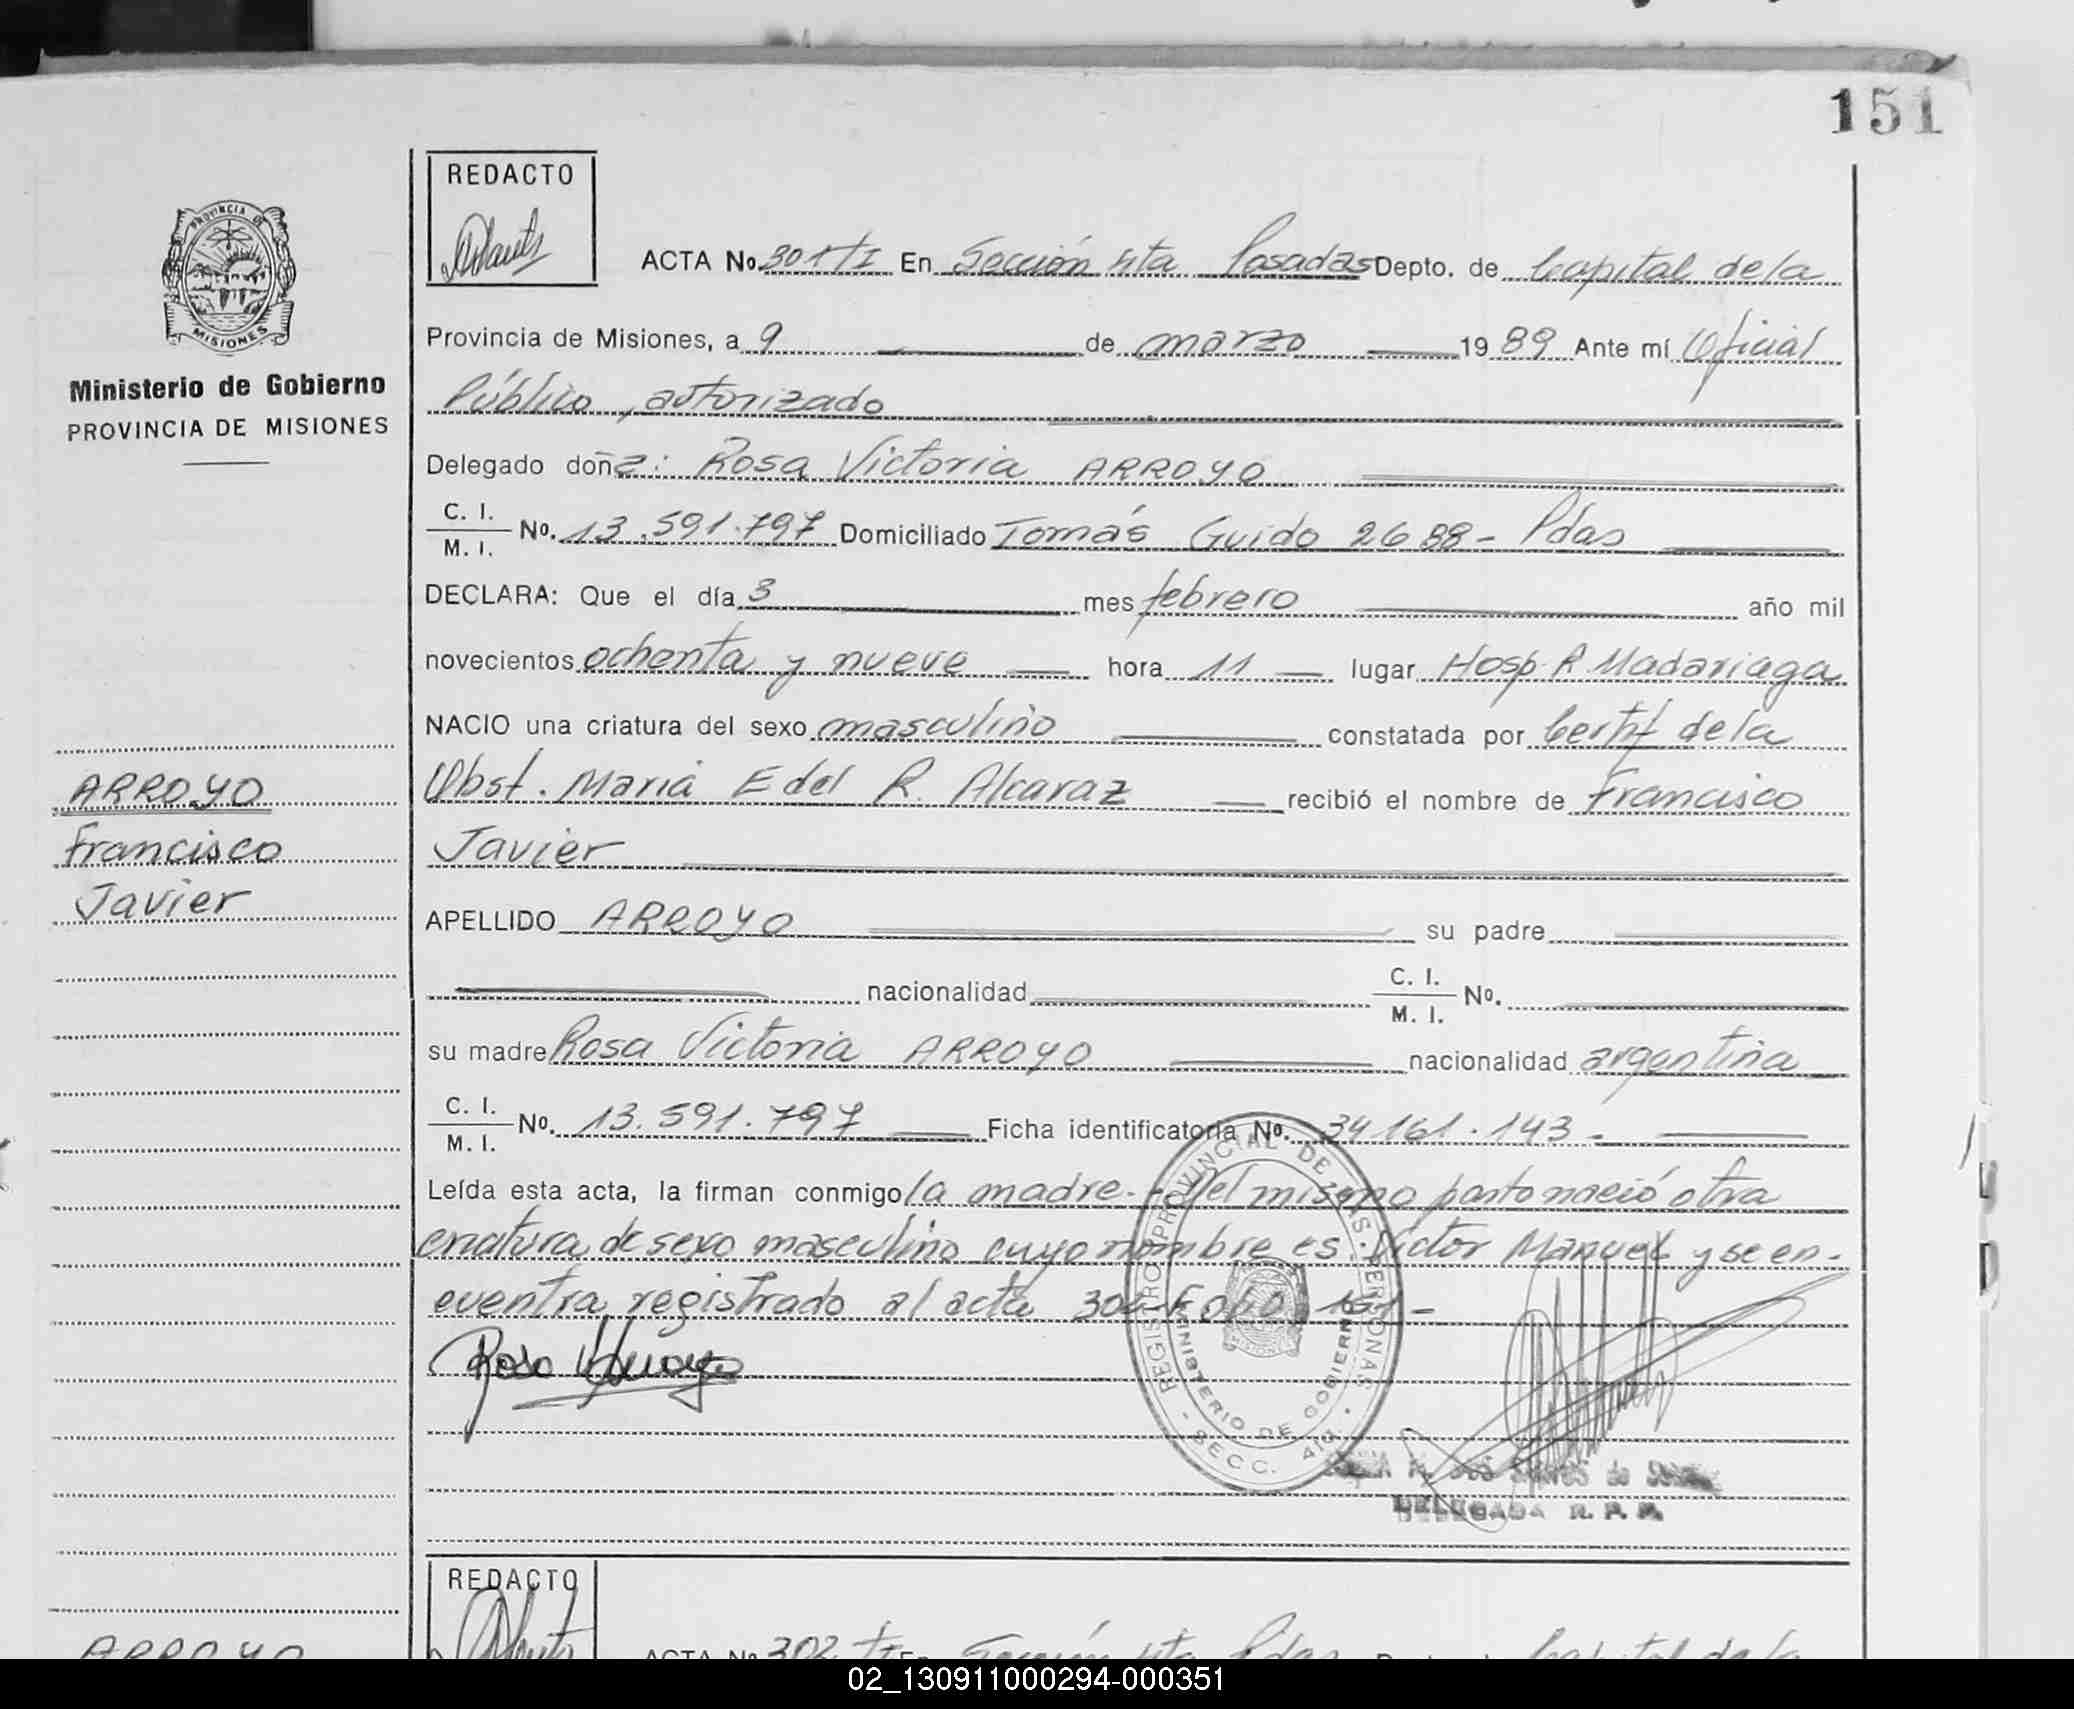 151
REDACTO
ACTA No. 301 tI En Sección 4ta Posadas Depto. de Capital de la
PROVINCIA DE
MISIONES
Provincia de Misiones, a 9 de marzo 1989 Ante mí Oficial
Ministerio de Gobierno
PROVINCIA DE MISIONES
Público, autorizado
Delegado doña: Rosa Victoria ARROYO
C. I.
M. I. No. 13.591.797 Domiciliado Tomás Guido 2688 - Pdas
DECLARA: Que el día 3 mes febrero año mil
novecientos ochenta y nueve hora 11 lugar Hosp. R. Madariaga
NACIO una criatura del sexo masculino constatada por Certif de la
Obst. María E del R. Alcaraz recibió el nombre de Francisco
Javier
ARROYO
Francisco
Javier
APELLIDO ARROYO su padre
nacionalidad C. I.
M. I. No.
su madre Rosa Victoria ARROYO nacionalidad argentina
C. I.
M. I. No. 13.591.797 Ficha identificatoria No. 34161.143.-
Leída esta acta, la firman conmigo la madre.- Del mismo parto nació otra
criatura de sexo masculino cuyo nombre es: Victor Manuel y se en-
cuentra registrado al acta 302 - Folio 151 -
REGISTRO PROVINCIAL DE LAS PERSONAS
MINISTERIO DE GOBIERNO
- SECC. 4ta. -
MISIONES
DELEGADA R. P. P.
REDACTO
ARROYO
ACTA No 302 tI En Sección 4ta Pdas Capital de la
02_130911000294-000351